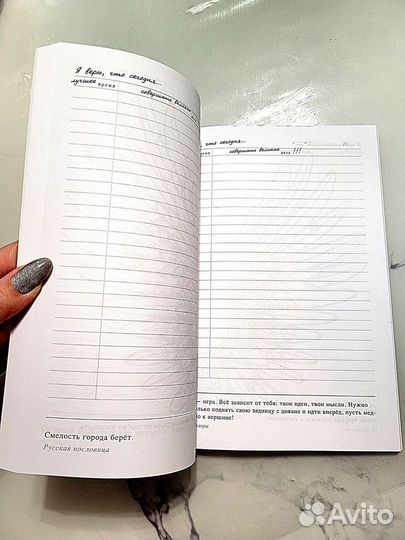 Я верю, что сегодня...
лучшее время
совершать великие
Смелость города берёт.
Русская пословица
что сегодня...
20 г.
время совершать великие дела !!!
— игра. Всё зависит от тебя: твои идеи, твои мысли. Нужно
только поднять свою задницу с дивана и идти вперёд, пусть мед-
к вершине!
Avito